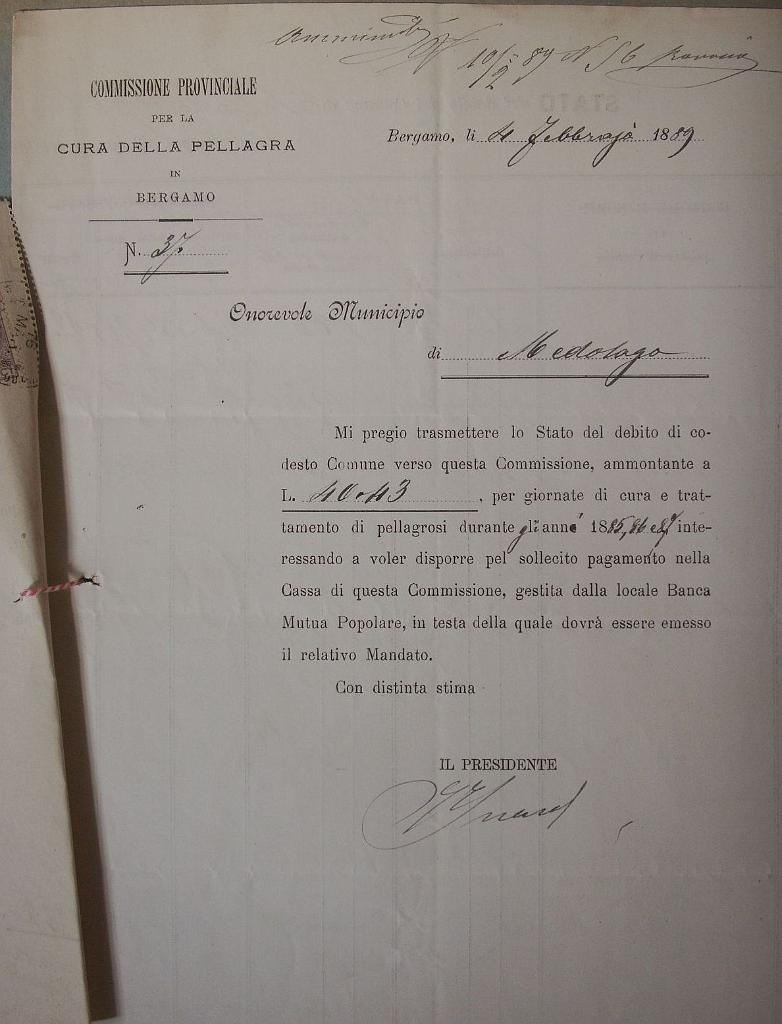 10/2 89 N 56
COMMISSIONE PROVINCIALE
PER LA
CURA DELLA PELLAGRA
IN
BERGAMO
Bergamo, li 4 Febbrajo 1889
N. 37
Onorevole Municipio
di Medolago
Mi pregio trasmettere lo Stato del debito di co-
desto Comune verso questa Commissione, ammontante a
L. 40.43, per giornate di cura e trat-
tamento di pellagrosi durante gli anni 1885, 86 e 87 inte-
ressando a voler disporre pel sollecito pagamento nella
Cassa di questa Commissione, gestita dalla locale Banca
Mutua Popolare, in testa della quale dovrà essere emesso
il relativo Mandato.
Con distinta stima
IL PRESIDENTE